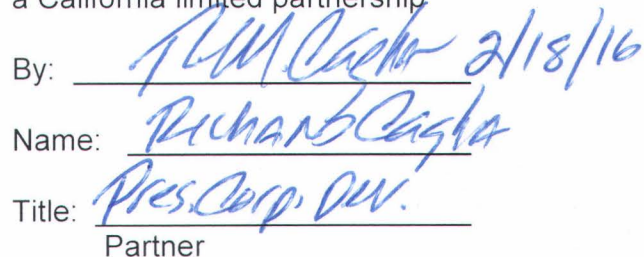 a California limited partnership
By: 2/18/16
Name: Richard Cagla
Title: Pres. Corp. Dev.
Partner